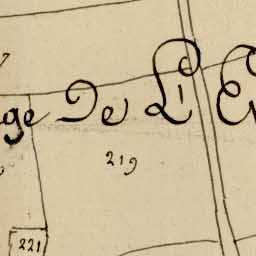 ge De L'E
219
221